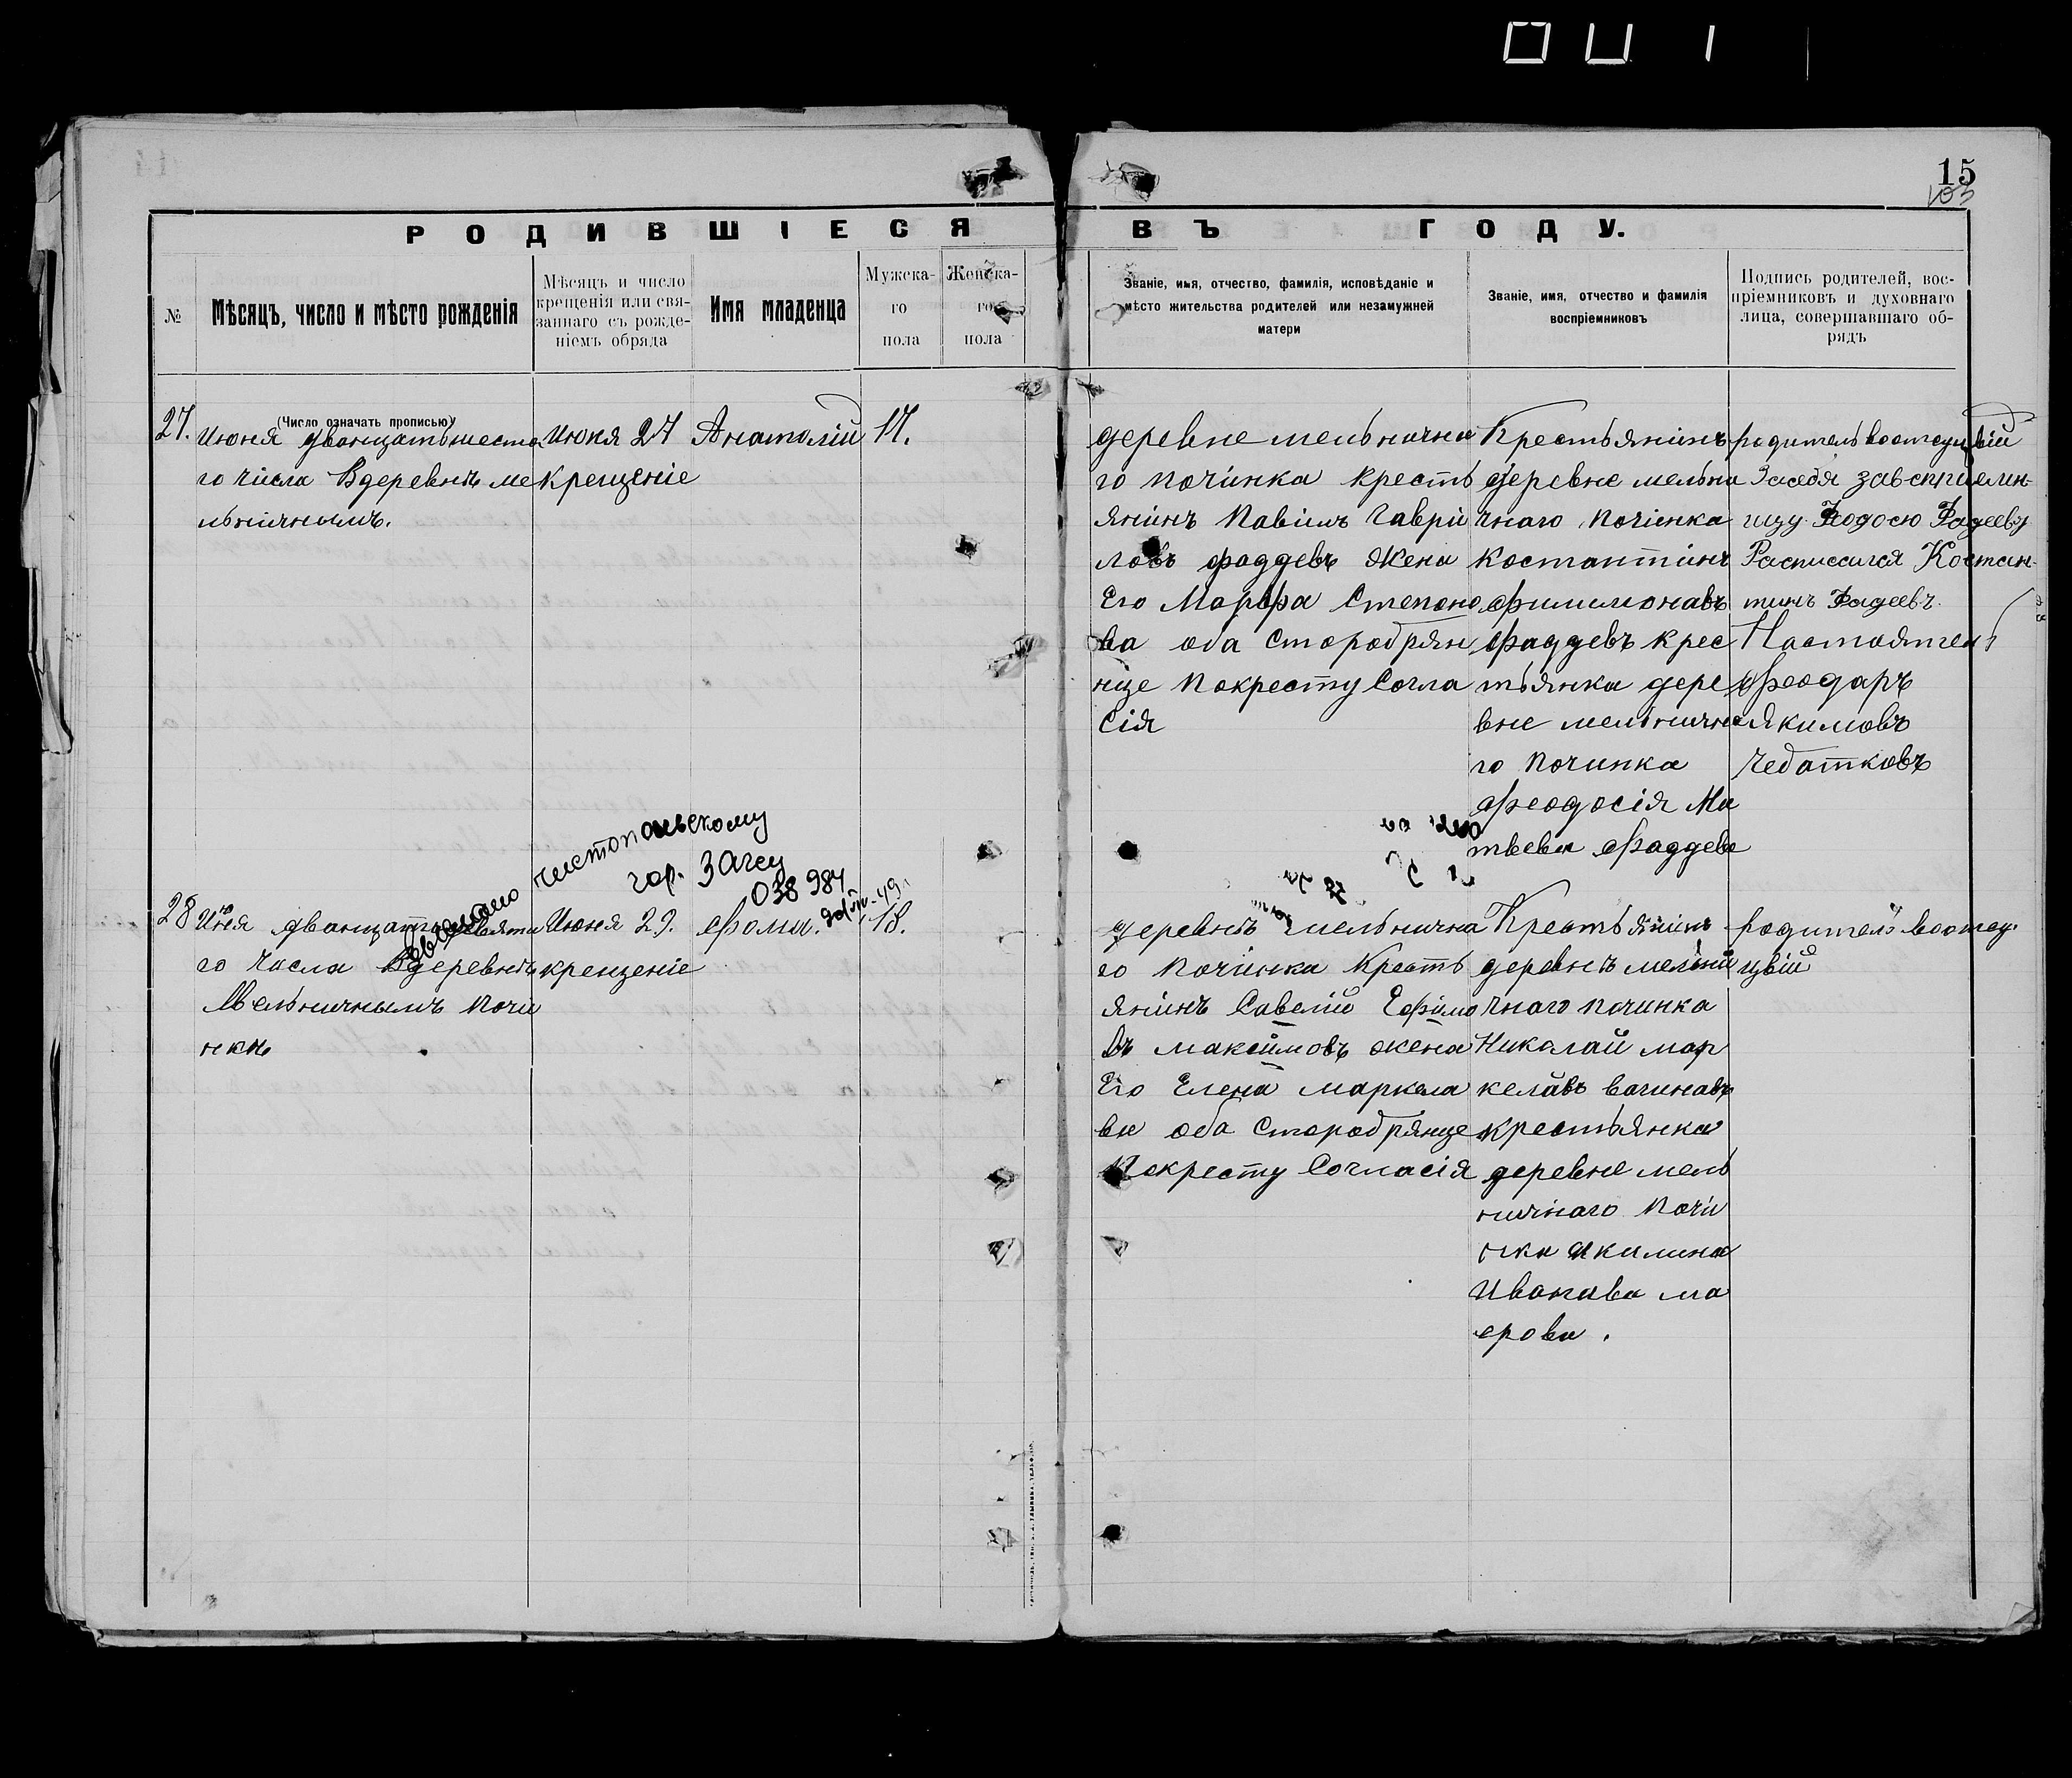 15
103
РОДИВШІЕСЯ ВЪ ГОДУ.
№
Мѣсяцъ, число и мѣсто рожденія
Мѣсяцъ и число
крещенія или свя-
заннаго съ рожде-
ніемъ обряда
Имя младенца
Мужска-
го
пола
Женска-
го
пола
Званіе, имя, отчество, фамилія, исповѣданіе и
мѣсто жительства родителей или незамужней
матери
Званіе, имя, отчество и фамилія
воспріемниковъ
Подпись родителей, вос-
пріемниковъ и духовнаго
лица, совершавшаго об-
рядъ
(Число означать прописью)
27.
июня дванцатьшесто
го числа Вдеревнѣ ме
льничнымъ.
июня 27
крещеніе
Анатолій
17.
деревне мельнична
го починка кресть
янинъ Павилъ Гаври
ловъ фаддевъ жена
Его Марфа Степоно
ва оба Старобрян
нце Покресту Согла
сія
Крестьянинъ
деревне мельни
чнаго починка
костантинъ
филимонавъ
фаддевъ крес
тьянка дере
вне мельнична
го починка
феодосія Ма
твева Фаддеве
родитель
Фодосю Фадееву
Расписался Костан-
тинъ Фадеевъ.
Настоятель
феодаръ
Якимовъ
Чебатковъ
Выслано Чистопольскому
гор. Загсу
038984
28
Июня дванцатадевято
го Числа Вдеревнѣ
Мельничнымъ почи
нки
Июня 29.
крещеніе
фома.
18.
деревнѣ мельнична
го починка Кресть
янинъ Савелій Ефимо
въ максимовъ жена
Его Елена маркела
ва оба Старобрянце
Покресту Согласія
Крестьянинъ
деревнѣ мельни
чнаго починка
Николай мар
келавъ вачинавъ
крестьянка
деревне мель
ничнаго Почи
нка акилина
Иванава ма
ерова.
родитель